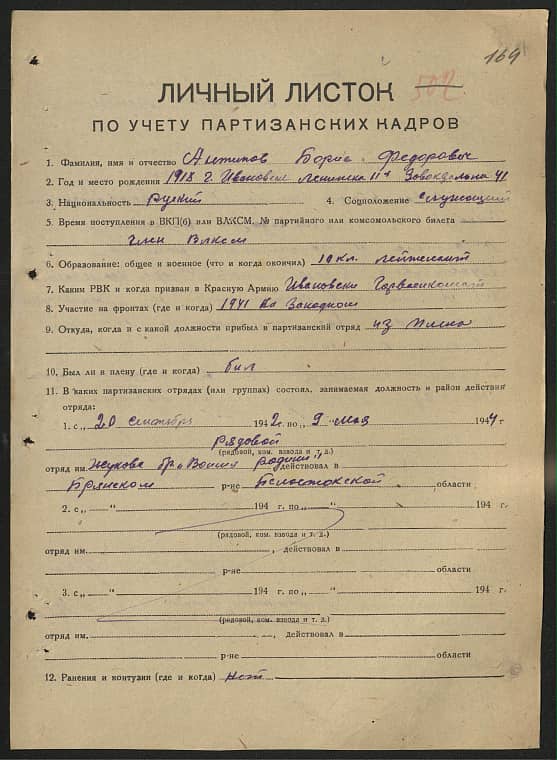 169
ЛИЧНЫЙ ЛИСТОК 502
ПО УЧЕТУ ПАРТИЗАНСКИХ КАДРОВ
1. Фамилия, имя и отчество Антипов Борис Федорович
2. Год и место рождения 1918 г. Ивановск Ленинска 41
3. Национальность Руский 4. Соцположение Служащий
5. Время поступления в ВКП(б) или ВЛКСМ, № партийного или комсомольского билета
член Влксм
6. Образование: общее и военное (что и когда окончил) 10 кл. лейтенант
7. Каким РВК и когда призван в Красную Армию Ивановски Горвоенкомат
8. Участие на фронтах (где и когда) 1941 На Западном
9. Откуда, когда и с какой должности прибыл в партизанский отряд из плена
10. Был ли в плену (где и когда) был
11. В каких партизанских отрядах (или группах) состоял, занимаемая должность и район действия
отряда:
1. с „20 сентября 1942 г. по „9" мая 1944
рядовой
(рядовой, ком. взвода и т. д.)
отряд им. Жукова бр. За Родину" действовал в
Брянском р-не Белостокской области
2. с „ " 194 г. по „ " 194 г.
(рядовой, ком. взвода и т. д.)
отряд им. , действовал в
р-не области
3. с „ " 194 г. по „ " 194 г.
(рядовой, ком. взвода и т. д.)
отряд им. , действовал в
р-не области
12. Ранения и контузии (где и когда) нет